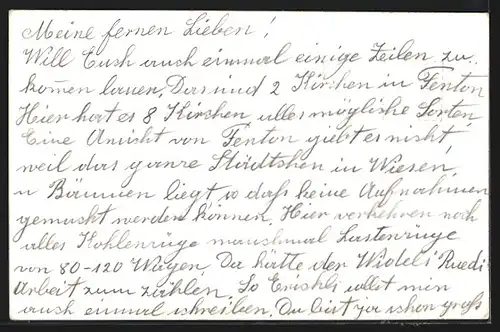 Meine fernen Lieben!
Will Euch auch einmal einige Zeilen zu
kom̄en lassen. Das sind 2 Kirchen in Fenton
Hier hat es 8 Kirchen alles mögliche Sorten
Eine Ansicht von Fenton giebt es nicht,
weil das ganze Städtchen in Wiesen
u Bäumen liegt, so dass keine Aufnahmen
gemacht werden können. Hier verkehren noch
alles Kohlenzüge manchmal Lastenzüge
von 80-120 Wagen. Da hätte der Ruedi
Arbeit zum zählen. So sollst mir
auch einmal schreiben. Du bist ja schon groß